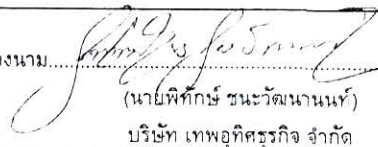 งนาม
(นายพิทักษ์ ชนะวัฒนานนท์)
บริษัท เทพอุทิศธุรกิจ จำกัด